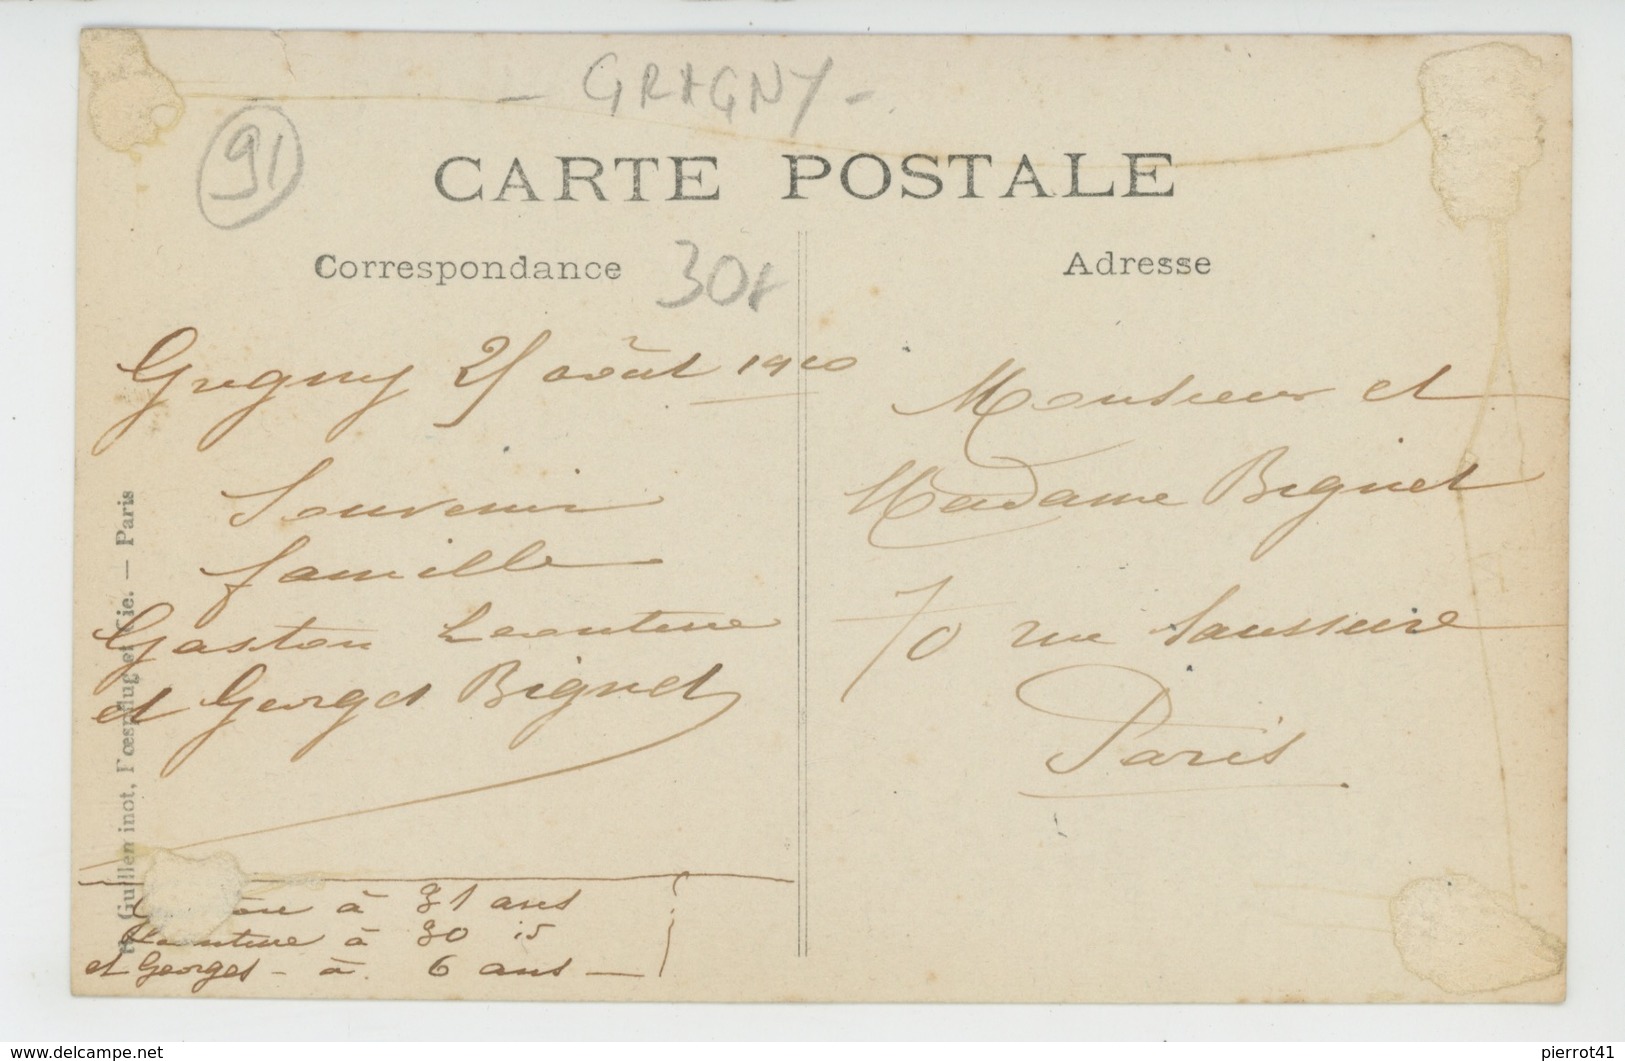 - GRIGNY -
91
CARTE POSTALE
Correspondance
30€
Adresse
Grigny 25 août 1910
Souvenir
famille
Gaston
et Georges Biguet
à 31 ans
à 30 is
et Georges - à 6 ans
Monsieur et
Madame Biguet
70 rue Saussure
Paris
Guilleminot, Bœspflug et Cie. — Paris
www.delcampe.net
pierrot41